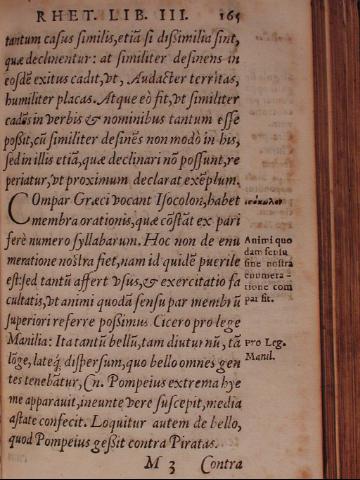 RHET. LIB. III. 165
tantum casus similis, etiã si dißimilia sint,
quæ declinentur: at similiter desinens in
eosdẽ exitus cadit, vt, Audacter territas,
humiliter placas. Atque eò fit, vt similiter
cadẽs in verbis & nominibus tantum esse
poßit, cũ similiter desinẽs non modò in his,
sed in illis etiã, quæ declinari nõ poßunt, re
periatur, vt proximum declarat exẽplum.
Compar Græci vocant Isocolon, habet
ἰσόκωλον
membra orationis, quæ cõstãt ex pari
ferè numero syllabarum. Hoc non de enu
meratione nostra fiet, nam id quidẽ puerile
est: sed tantũ affert vsus, & exercitatio fa
cultatis, vt animi quodã sensu par membrũ
superiori referre poßimus. Cicero pro lege
Animi quo
dam sensu
sine nostra
enumera-
tione com
par fit.
Manilia: Ita tantũ bellũ, tam diutur nũ, tã
lõgè, lateq́; dispersum, quo bello omnes gen
tes tenebãtur, Cn. Pompeius extrema hye
me apparauit, ineunte vere suscepit, media
æstate confecit. Loquitur autem de bello,
quod Pompeius geßit contra Piratas.
Pro Leg.
Manil.
M 3 Contra